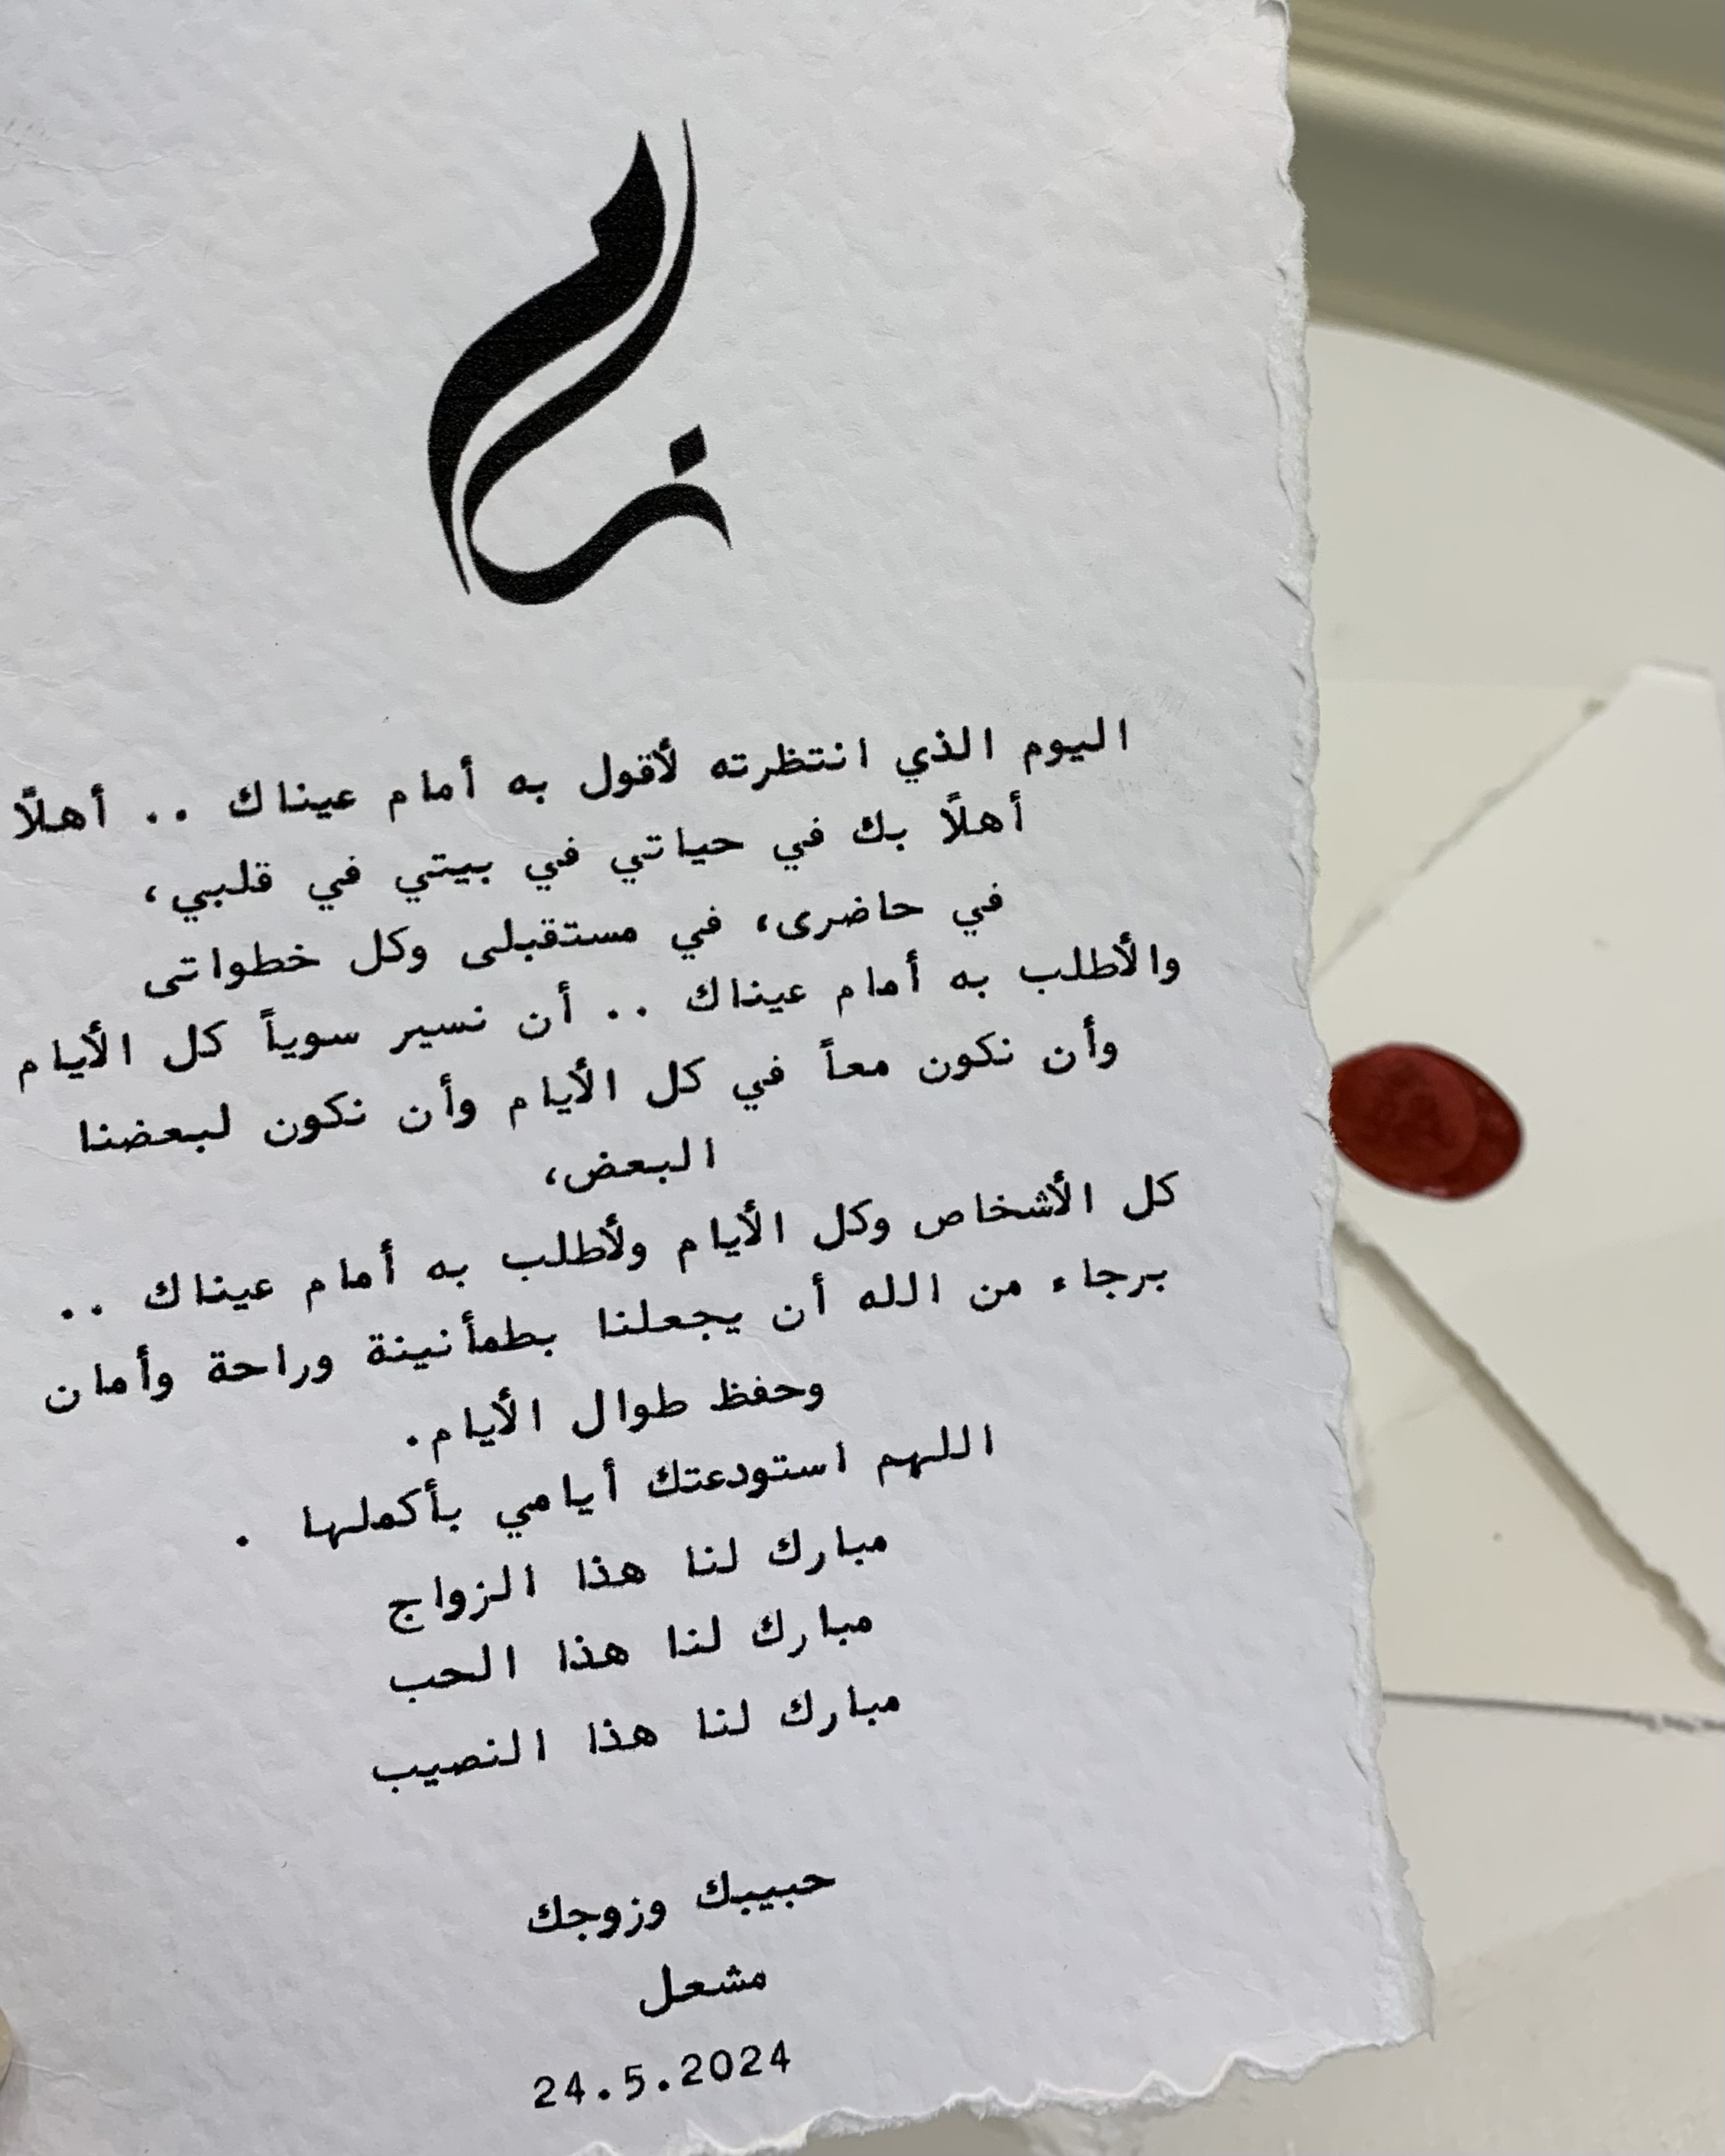 اليوم الذي انتظرته لأقول به أمام عيناك .. أهلًا
أهلًا بك في حياتي في بيتي في قلبي،
في حاضرى، في مستقبلى وكل خطواتى
والأطلب به أمام عيناك .. أن نسير سوياً كل الأيام
وأن نكون معاً في كل الأيام وأن نكون لبعضنا
البعض،
كل الأشخاص وكل الأيام ولأطلب به أمام عيناك ..
برجاء من الله أن يجعلنا بطمأنينة وراحة وأمان
وحفظ طوال الأيام.
اللهم استودعتك أيامي بأكملها .
مبارك لنا هذا الزواج
مبارك لنا هذا الحب
مبارك لنا هذا النصيب
حبيبك وزوجك
مشعل
24.5.2024